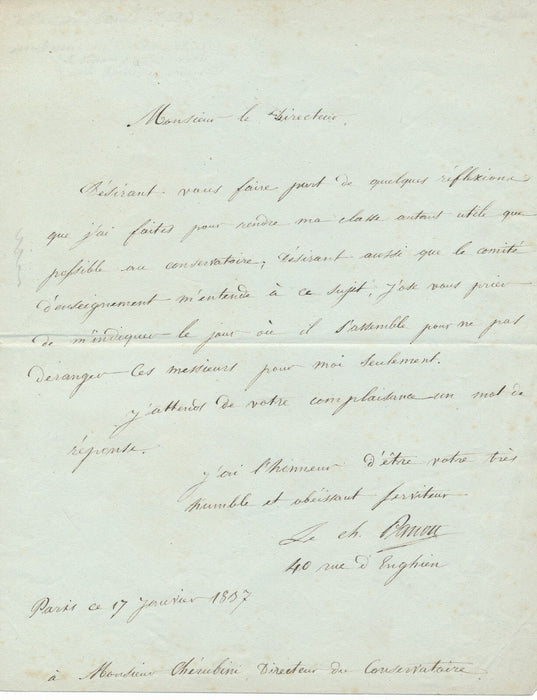 Monsieur le Directeur,
Désirant vous faire part de quelques réflexions
que j'ai faites pour rendre ma classe autant utile que
possible au conservatoire, Désirant aussi que le comité
d'enseignement m'entende à ce sujet, j'ose vous prier
de m'indiquer le jour où il s'assemble pour ne pas
déranger ces messieurs pour moi seulement.
J'attends de votre complaisance un mot de
réponse.
J'ai l'honneur d'être votre très
humble et obéissant serviteur
Le ch.
40 rue d'Enghien
Paris ce 17 Janvier 1837
à Monsieur Cherubini Directeur du Conservatoire